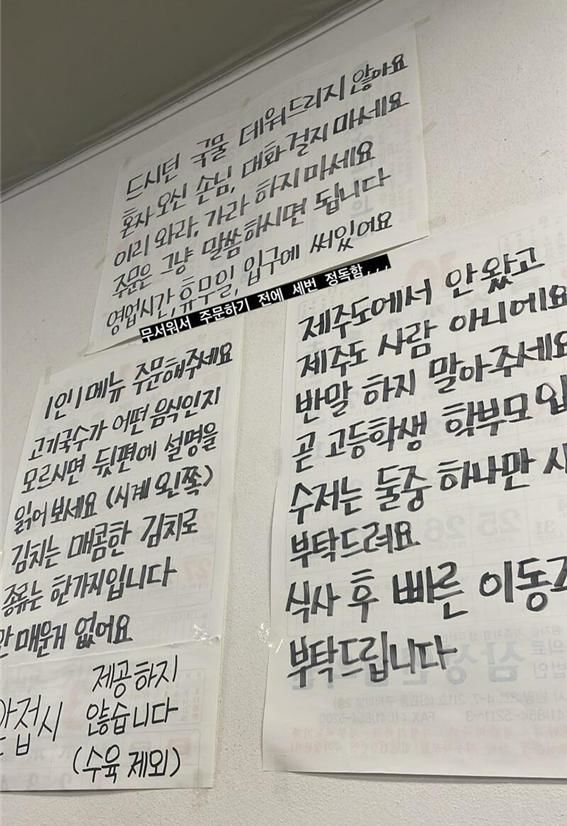 드시던 국물 데워드리지 않아요
혼자 오신 손님, 대화 걸지 마세요
이리 와라, 가라 하지마세요
주문은 그냥 말씀하시면 됩니다
영업시간, 휴무일, 입구에 써있어요
무서워서 주문하기 전에 세번 정독함,,,
1인 1메뉴 주문해주세요
고기국수가 어떤 음식인지
모르시면 뒷편에 설명을
읽어보세요 (시계 왼쪽)
김치는 매콤한 김치로
종류는 한가지입니다
매운게 없어요
제공하지
않습니다
(수육 제외)
제주도에서 안왔고
제주도 사람 아니에요
반말 하지 말아주세요
곧 고등학생 학부모
수저는 둘중 하나만
부탁드려요
식사 후 빠른 이동
부탁드립니다